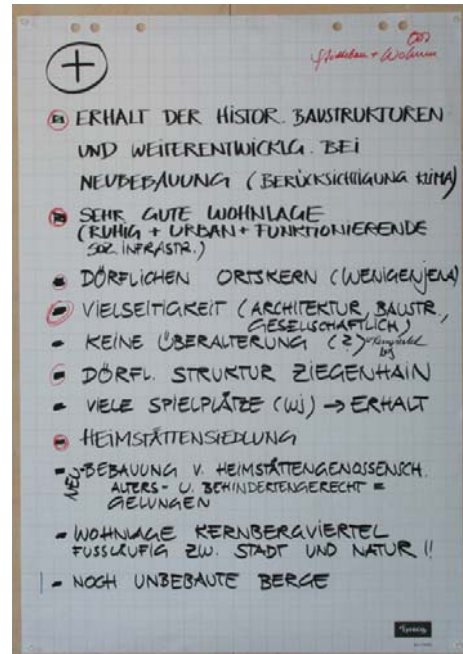 +
Städtebau + Wohnen
ERHALT DER HISTOR. BAUSTRUKTUREN
UND WEITERENTWICKLG. BEI
NEUBEBAUUNG (BERÜCKSICHTIGUNG KLIMA)
SEHR GUTE WOHNLAGE
(RUHIG + URBAN + FUNKTIONIERENDE
SOZ. INFRASTR.)
- DÖRFLICHEN ORTSKERN (WENIGENJENA)
- VIELSEITIGKEIT (ARCHITEKTUR, BAUSTR.,
GESELLSCHAFTLICH)
- KEINE ÜBERALTERUNG (?)
- DÖRFL. STRUKTUR ZIEGENHAIN
- VIELE SPIELPLÄTZE (WJ) → ERHALT
- HEIMSTÄTTENSIEDLUNG
- NEUBEBAUUNG V. HEIMSTÄTTENGENOSSENSCH.
ALTERS- U. BEHINDERTENGERECHT =
GELUNGEN
- WOHNLAGE KERNBERGVIERTEL
FUSSLÄUFIG ZW. STADT UND NATUR !!
- NOCH UNBEBAUTE BERGE